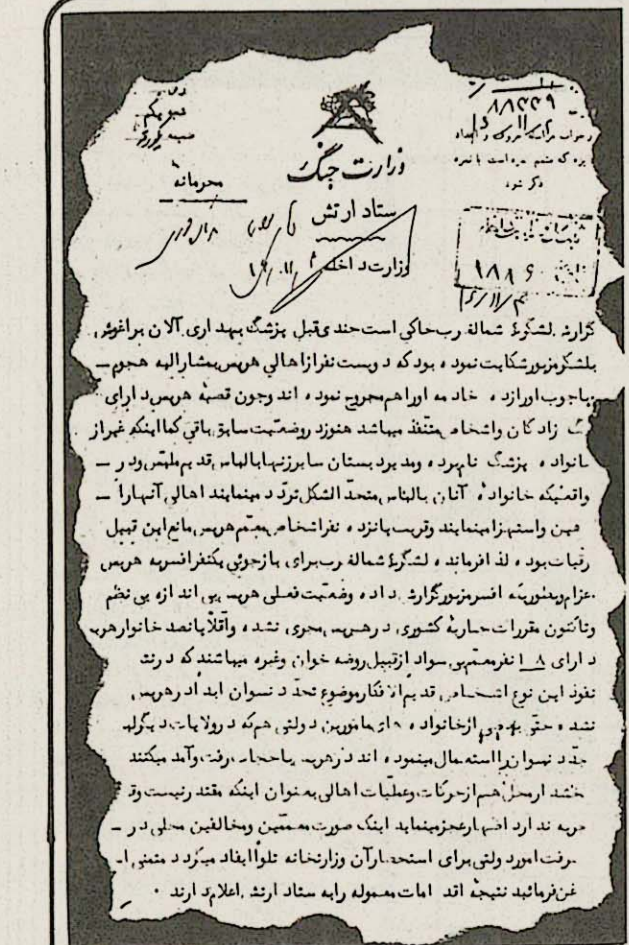 ۸۸۴۴۹
محرمانه
وزارت جنگ
ستاد ارتش
وزارت داخله
۹۸۸۶
گزارش لشگر شمالغرب حاکی است چندی قبل پزشگ بهداری آلان براغوش
بلشگر مزبور شکایت نموده بود که دویست نفر از اهالی هریس بمشارالیه هجوم
باچوب اورا زده خادمه اورا هم مجروح نموده اند وچون قصبه هریس دارای
زادگان واشخاص متنفذ میباشد هنوز در وضعیت سابق باقی کما اینکه غیر از
خانواده پزشگ نامبرده ومدیر دبستان سایر زنها بالباس قدیم ملبس ودر
واقعیکه خانواده آنان بالباس متحد الشکل تردد مینمایند اهالی آنهارا
واستهزا مینمایند وقریب پانزده نفر اشخاص معمم هریس مانع این قبیل
ترقیات بوده لذا فرمانده لشگر شمالغرب برای بازجوئی یکنفر افسر به هریس
افسر مزبور گزارش داده وضعیت فعلی هریس بی اندازه بی نظم
وتاکنون مقررات جاریه کشوری در هریس مجری نشده واقلا پانصد خانوار
دارای ۱۸ نفر معمم بی سواد از قبیل روضه خوان وغیره میباشند که در
نفوذ این نوع اشخاص قدیم الافکار موضوع تجدد نسوان ابدا در هریس
نشده حتی از خانواده های مامورین دولتی هم که در ولایات دیگر
تجدد نسوان را استعمال مینموده اند در هریس باحجاب رفت وآمد میکنند
بخشدار محل هم از حرکات وعملیات اهالی بعنوان اینکه مقتدر نیست
ندارد اظهار عجز مینماید اینک صورت معممین ومخالفین محلی در
دولتی برای استحضار آن وزارتخانه تلوا ایفاد میگردد متمنی
فرمائید نتیجه اقدامات معموله رابه ستاد ارتش اعلام دارند .